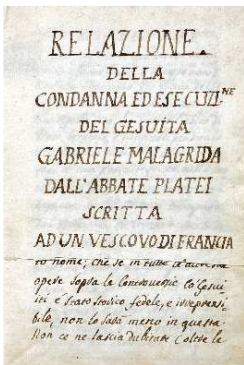 RELAZIONE.
DELLA
CONDANNA ED ESECUZI.NE
DEL GESUITA
GABRIELE MALAGRIDA
DALL'ABBATE PLATEI
SCRITTA
AD UN VESCOVO DI FRANCIA
nome, che se in tutte
opere sopra le Controversie Gesui
iti è stato Storico fedele, e irreprensi
bile, non lo sarà meno in questa.
Non ce ne lascia dubitare